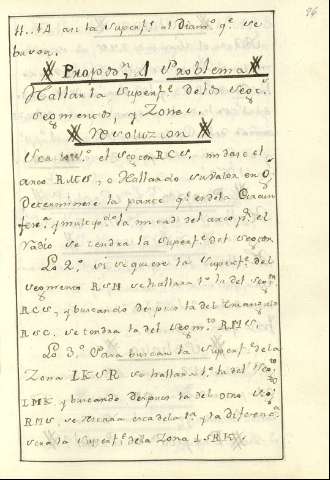 96
11..14 an la Superf.e al Diam.o q.e se
busca.
Propos.n 1 Problema
Hallar la Superf.e delos Sec.s
segmentos, y Zonas.
Resoluzion
Sea 1.o el Sector RCS. midase el
arco RMS, o Hallando su valor en G,
Determinese la parte q.e es dela Circun
fer.a y multip.do la mitad del arco p.r el
radio se tendra la Superf.e del Sector
Lo 2.o si se quiere la Superf.e del
segmento RSM se hallara 1.o la del Seg.to
RCS, y buscando despues la del triangulo
RSC. se tendra la del Segm.to RMS.
Lo 3.o Para buscar la Superf.e dela
Zona IKSR se hallara 1.o la del Seg.to
IMK y buscando despues la del otro Seg.to
RMS se restara esta dela 1.a y la diferenc.a
sera la Superf.e dela Zona ISRK.